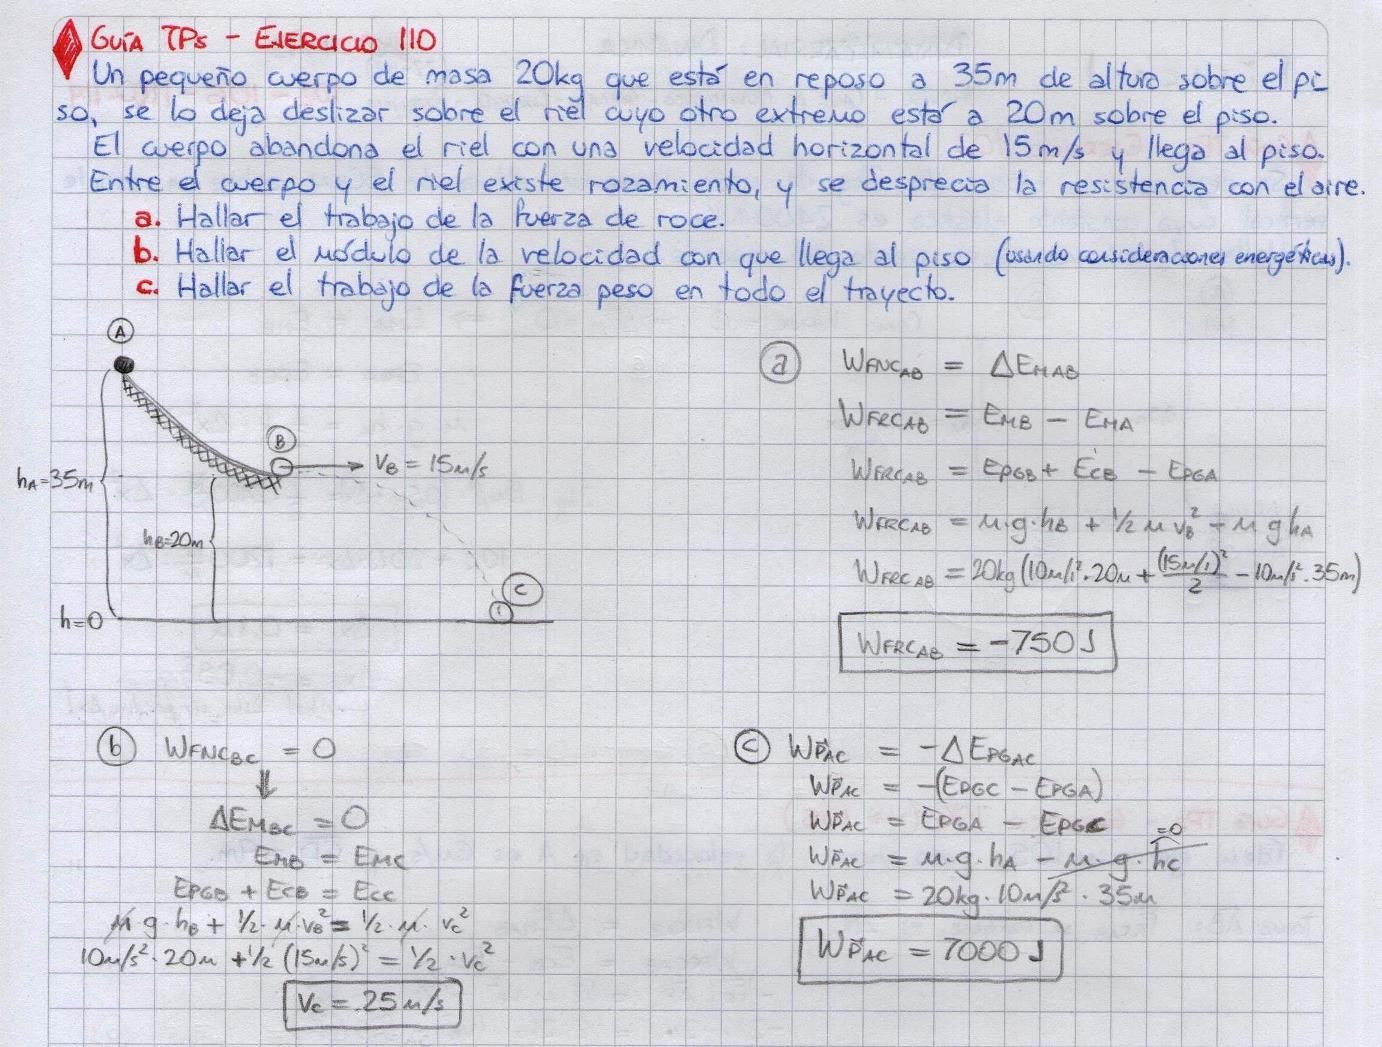 GUÍA TPs - EJERCICIO 110
Un pequeño cuerpo de masa 20kg que está en reposo a 35m de altura sobre el pi
so, se lo deja deslizar sobre el riel cuyo otro extremo está a 20m sobre el piso.
El cuerpo abandona el riel con una velocidad horizontal de 15m/s y llega al piso.
Entre el cuerpo y el riel existe rozamiento, y se desprecia la resistencia con el aire.
a. Hallar el trabajo de la fuerza de roce.
b. Hallar el módulo de la velocidad con que llega al piso (usando consideraciones energéticas).
c. Hallar el trabajo de la fuerza peso en todo el trayecto.
A
B
vB = 15m/s
hA=35m
hB=20m
C
h=0
a WFNCAB = ΔEMAB
WFRCAB = EMB - EMA
WFRCAB = EPGB + ECB - EPGA
WFRCAB = m·g·hB + 1/2 m vB² - m g hA
WFRCAB = 20kg (10m/s²·20m + (15m/s)²/2 - 10m/s²·35m)
WFRCAB = -750J
b WFNCBC = 0
ΔEMBC = 0
EMB = EMC
EPGB + ECB = ECC
m g·hB + 1/2·m·vB² = 1/2·m·vC²
10m/s²·20m + 1/2 (15m/s)² = 1/2·vC²
vC = 25m/s
c WPAC = -ΔEPGAC
WPAC = -(EPGC - EPGA)
WPAC = EPGA - EPGC
WPAC = m·g·hA - m·g·hC =0
WPAC = 20kg·10m/s²·35m
WPAC = 7000J